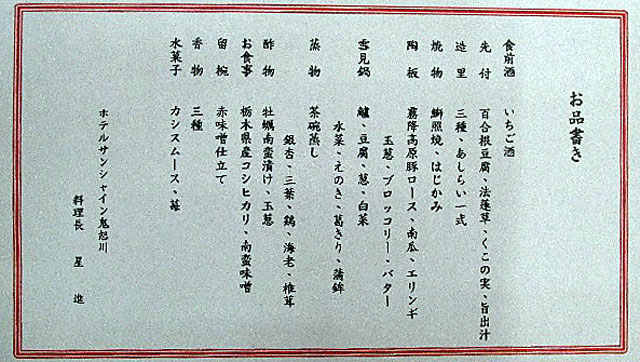 お品書き
食前酒 いちご酒
先付 百合根豆腐、法蓮草、くこの実、旨出汁
造里 三種、あしらい一式
焼物 鰤照焼、はじかみ
陶板 霧降高原豚ロース、南瓜、エリンギ
玉葱、ブロッコリー、バター
雪見鍋 鱸、豆腐、葱、白菜
水菜、えのき、葛きり、蒲鉾
蒸物 茶碗蒸し
銀杏、三葉、鶏、海老、椎茸
酢物 牡蠣南蛮漬け、玉葱
お食事 栃木県産コシヒカリ、南蛮味噌
留椀 赤味噌仕立て
香物 三種
水菓子 カシスムース、苺
ホテルサンシャイン鬼怒川
料理長 星